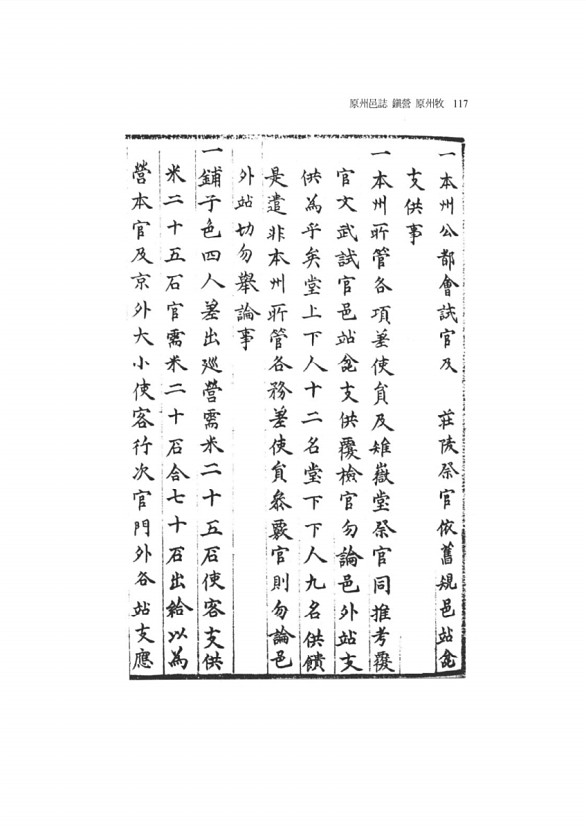 原州邑誌 鎭營 原州牧 117
一本州公都會試官及 莊陵祭官依舊規邑站兺
支供事
一本州所管各項差使員及雉嶽堂祭官同推考覆
官文武試官邑站兺支供覆檢官勿論邑外站支
供為乎矣堂上下人十二名堂下下人九名供饋
是遣非本州所管各務差使員叅覈官則勿論邑
外站切勿舉論事
一鋪子色四人差出廵營需米二十五石使客支供
米二十五石官需米二十石合七十石出給以為
營本官及京外大小使客行次官門外各站支應